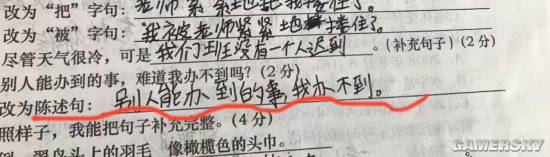 改为“把”字句：老师紧紧地把我搂住了。
改为“被”字句：我被老师紧紧地搂住了。
尽管天气很冷，可是我们班没有一个人迟到。（补充句子）（2分）
别人能办到的事，难道我办不到吗？（2分）
改为陈述句：别人能办到的事我办不到。
照样子，我能把句子补充完整。（4分）
翠鸟头上的羽毛 像橄榄色的头巾。
GAMERSKY